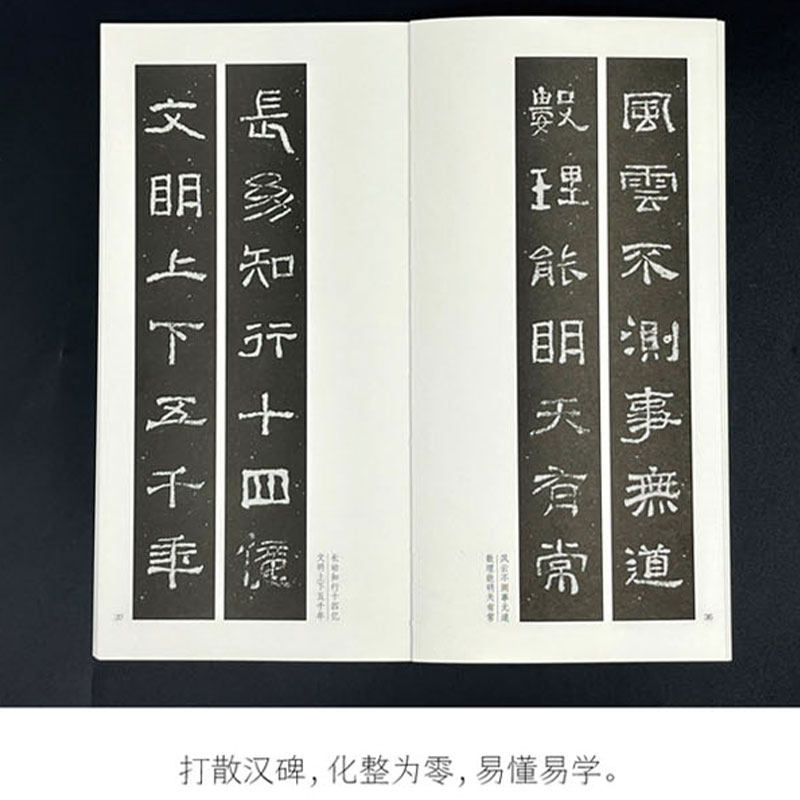 風雲不測事無道
數理能明天有常
风云不测事无道
数理能明天有常
36
長幼知行十四億
文明上下五千年
长幼知行十四亿
文明上下五千年
37
打散汉碑，化整为零，易懂易学。